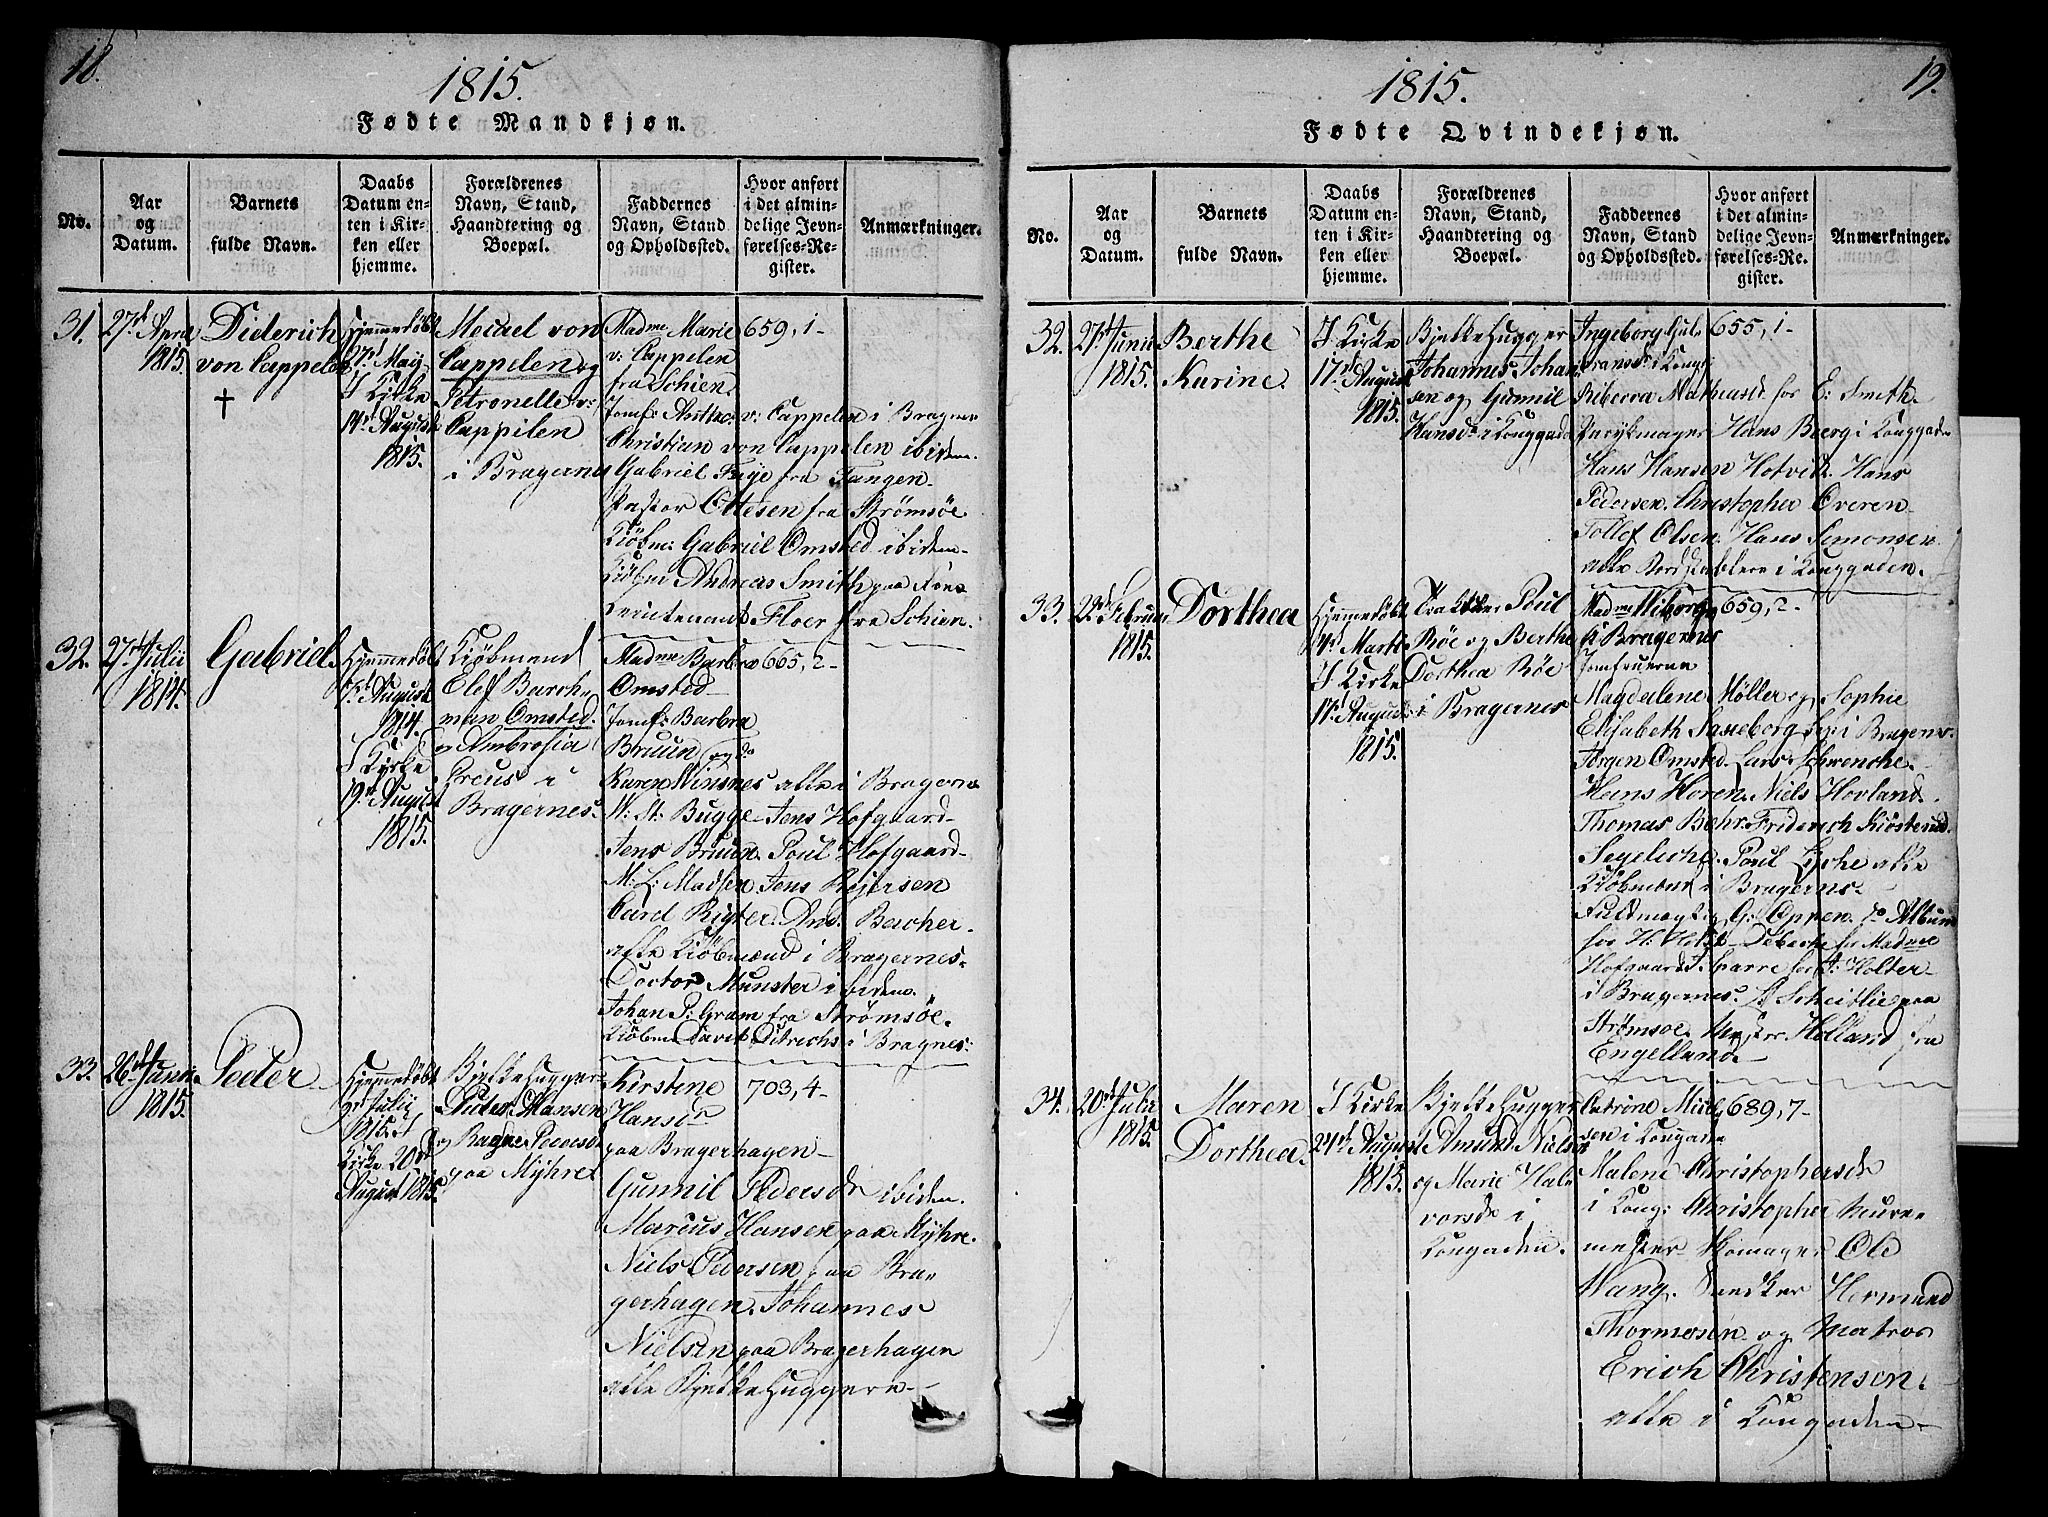 18.
1815.
Fødte Mandkjøn.
No.
Aar og Datum.
Barnets fulde Navn.
Daabs Datum enten i Kirken eller hjemme.
Forældrenes Navn, Stand, Haandtering og Boepæl.
Faddernes Navn, Stand og Opholdssted.
Hvor anført i det almindelige Jevnførelses-Register.
Anmærkninger.
31.
27d April
1815.
Diderich
von Cappelen
†
Hjemmedøbt
27d Maij
I Kirke
14d August
1815.
Micael von
Cappelen og
Petronelle v:
Cappelen
i Bragernes
Madme Marie
v: Cappelen
fra Schien.
Jomf: v: Cappelen i Bragernes
Christian von Cappelen ibidem.
Gabriel fra Tangen.
Pastor Ottesen fra Strømsøe
Kiøbm: Gabriel Omsted ibidem.
Kiøbm Andreas Smith paa
Leutenant Floer fra Schien.
659, 1-
32.
27d Julii
1814.
Gabriel.
Hjemmedøbt
August
1814.
I Kirke
19d August
1815.
Kiøbmand
Elef Barchman Omsted.
og Ambrosia
Creus i
Bragernes.
Madme Barbra
Omsted
Jomf: Barbra
Bruun og do
Karen Winsnes alle i Bragern
W: St: Bugge Jens Hofgaard
Jens Bruun. Poul Hofgaard
M: L: Madsen Jens Beijersen
Carel Rigter. And. Beccher.
alle Kiøbmænd i Bragernes.
Doctor Munster ibidem.
Johan P: Gram fra Strømsøe.
Kiøbm David Ditrichs i Bragnes:
665, 2-
33.
26d Junii
1815.
Peder
Hjemmedøbt
2d Julij
1815. I
Kirke 20d
August 1815.
Bjelkehugger
Peter Hansen
og Ragne Pedersd
paa Mijhre
Kirstine
Hansdr
paa Bragerhagen
Gunnil Pedersdr ibidem.
Marcus Hansen paa Mijhre.
Niels Pedersen paa Bragerhagen. Johannes
Nielsen paa Bragerhagen
alle Bjelkehuggere
703, 4-
19.
1815.
Fødte Qvindekjøn.
No.
Aar og Datum.
Barnets fulde Navn.
Daabs Datum enten i Kirken eller hjemme.
Forældrenes Navn, Stand, Haandtering og Boepæl.
Faddernes Navn, Stand og Opholdssted.
Hvor anført i det almindelige Jevnførelses-Register.
Anmærkninger.
32.
27d Junii
1815.
Berthe
Karine.
I Kirke
17d August
1815.
Bjelkehugger
Johannes Johansen og Gunnil
Hansdr i Konggade
Ingeborg
i Kongg
Mathiesd for E: Smith.
Parykmager Hans Berg i Konggade
Hans Hansen Hotvidt. Hans
Pedersen. Christopher Overen
Tollef Olsen. Hans Simonsen
alle Bordstablere i Konggaden.
655, 1-
33.
2d Februar
1815.
Dorthea
Hjemmedøbt
4d Marti
I Kirke
17d August
1815.
Poul
Røe og Berthe
Dorthea Røe
i Bragernes
Madme Wiborg
i Bragernes
Jomfruerne
Magdalene Møller og Sophie
Elisabeth Saxeborg i Bragern.
Jørgen Omsted. Lars Schwencke.
Hans Horen. Niels Hovland.
Thomas Behr. Friderich Kiøsterud.
Segelche. Poul Lyche alle
Kiøbmænd i Bragernes.
Fuldmægtig G: Oppen. do Album
for H: Holst for Madme
Hofgaard for J: Holter
i Bragernes. Scheitlie paa
Strømsøe. Holland fra
Engelland.
659, 2-
34.
20d Julii
1815.
Maren
Dorthea.
I Kirke
24d August
1815.
Bjelkehugger
Amund Nielsen
og Marie Halvorsdr i
Kongaden.
Catrine i Kongade
Malene Christophersdr
i Kong: Christopher Muurmester Ole
Wang. Snedker Hermund
Thormosen og Matros
Erich Christensen.
alle i Kongaden
689, 7-